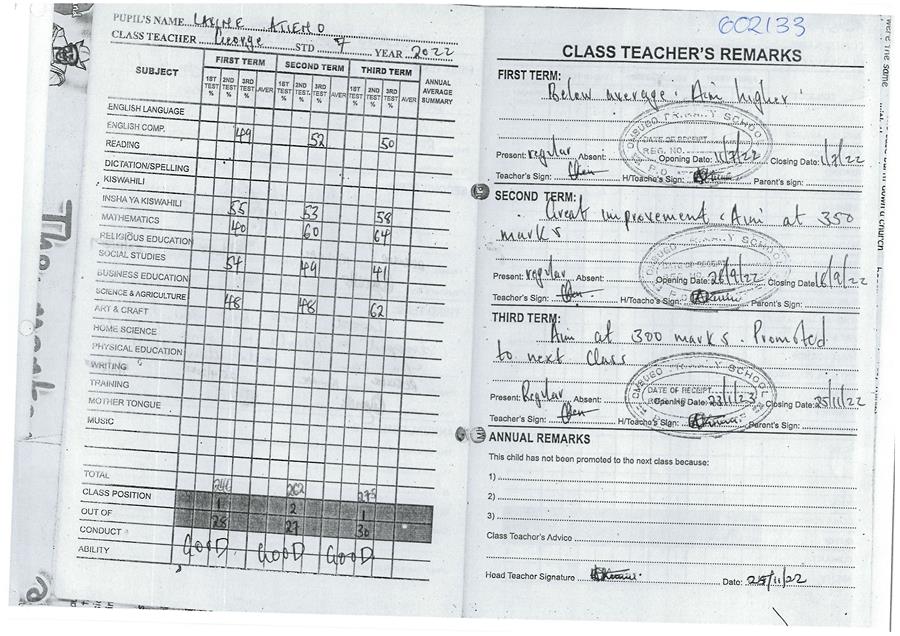 PUPIL'S NAME LAVINE ATIENO
CLASS TEACHER George STD 7 YEAR 2022
SUBJECT FIRST TERM SECOND TERM THIRD TERM ANNUAL AVERAGE SUMMARY
1ST TEST % 2ND TEST % 3RD TEST % AVER 1ST TEST % 2ND TEST % 3RD TEST % AVER 1ST TEST % 2ND TEST % 3RD TEST % AVER
ENGLISH LANGUAGE
ENGLISH COMP. 49 52 50
READING
DICTATION/SPELLING
KISWAHILI
INSHA YA KISWAHILI 55 53 58
MATHEMATICS 40 60 64
RELIGIOUS EDUCATION
SOCIAL STUDIES 54 49 41
BUSINESS EDUCATION
SCIENCE & AGRICULTURE 48 48 62
ART & CRAFT
HOME SCIENCE
PHYSICAL EDUCATION
WRITING
TRAINING
MOTHER TONGUE
MUSIC
TOTAL 246 262 275
CLASS POSITION 1 2 1
OUT OF 28 27 30
CONDUCT GOOD GOOD GOOD
ABILITY
602133
CLASS TEACHER'S REMARKS
FIRST TERM:
Below average. Aim higher
Present: regular Absent: Opening Date: Closing Date: 1/7/22
Teacher's Sign: H/Teache's Sign: Parent's sign:
SECOND TERM:
Great improvement. Aim at 350
marks
Present: regular Absent: Opening Date: 26/9/22 Closing Date 16/9/22
Teacher's Sign: H/Teache's Sign: Parent's & Sign:
THIRD TERM:
Aim at 300 marks. Promoted
to next class
Present: Regular Absent: Opening Date: 23/1/23 Closing Date: 25/11/22
Teacher's Sign: H/Teache's Sign: Parent's Sign:
DATE OF RECEIPT
ANNUAL REMARKS
This child has not been promoted to the next class because:
1)
2)
3)
Class Teacher's Advice
Head Teacher Signature Date: 25/11/22